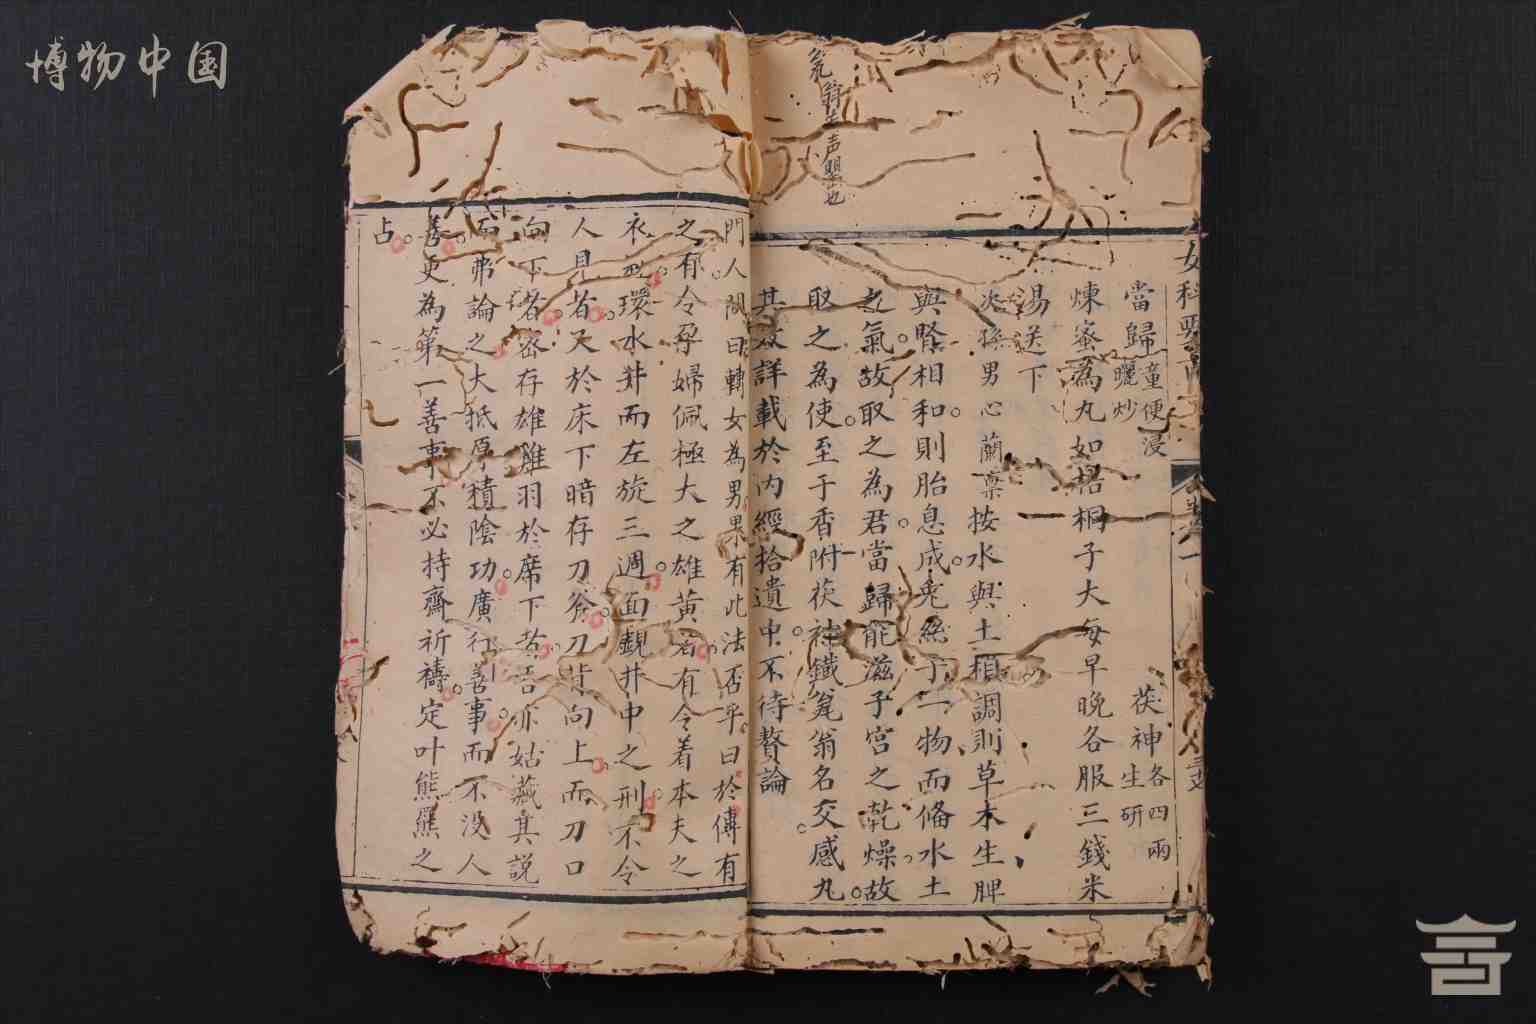 博物中国
翁去声壐也
女科要
當歸童便浸曬炒 茯神生研各四兩
煉蜜為丸如梧桐子大每早晚各服三錢米
湯送下
次孫男心蘭稟按水與土相調則草木生脾
與腎相和則胎息成兎絲子一物而俻水土
之氣故取之為君當歸能滋子宮之乾燥故
取之為使至于香附茯神鐵瓮翁名交感丸
其效詳載於內經拾遺中不待贅論
門人問曰轉女為男果有此法否乎曰於傳有
之有令孕婦佩極大之雄黃者有令着本夫之
衣冠環水井而左旋三週面覩井中之刑不令
人見者又於床下暗存刀斧刀背向上而刀口
向下者密存雄雞羽於席下者吾亦姑藏其説
而弗論之大抵厚積陰功廣行善事而不没人
善更為第一善事不必持齋祈禱定叶熊羆之
占